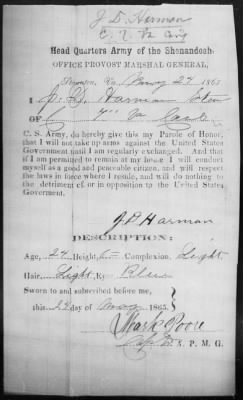 J D Harman
Head Quarters Army of the Shenandoah,
OFFICE PROVOST MARSHAL GENERAL,
Va May 27 1865
I J. D. Harman
OF C 7" Va Cav
C. S. Army, do hereby give this my Parole of Honor,
that I will not take up arms against the United States
Government until I am regularly exchanged. And that
if I am permitted to remain at home I will conduct
myself as a good and peaceable citizen, and will respect
the laws in force where I reside, and will do nothing to
the detriment of or in opposition to the United States
Government.
J. D. Harman
DESCRIPTION:
Age, 24 Height, Complexion, Light
Hair, Light, Eyes Blue
Sworn to and subscribed before me,
this 29 day of May 1865.
Mark Poore
A. P. M. G.